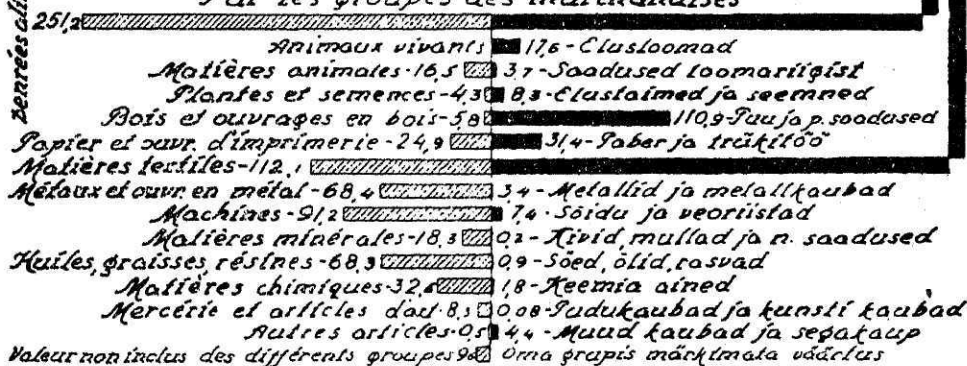 Par les groupes des marchandises
251,2
Denrées
Animaux vivants 17,6 - Elusloomad
Matières animales - 16,5 3,7 - Saadused loomariigist
Plantes et semences - 4,3 8,3 - Elustaimed ja seemned
Bois et ouvrages en bois - 5,8 110,9 - Puu ja p. saadused
Papier et ouvr. d'imprimerie - 24,9 31,4 - Paber ja trükitöö
Matières textiles - 112,1
Métaux et ouvr. en métal - 68,4 3,4 - Metallid ja metallkaubad
Machines - 91,2 7,4 - Sõidu ja veoriistad
Matières minérales - 18,3 0,2 - Kivid, mullad ja n. saadused
Huiles, graisses, résines - 68,3 0,9 - Söed, õlid, rasvad
Matières chimiques - 32,6 1,8 - Keemia ained
Mercérie et articles d'art - 8,5 0,08 - Pudukaubad ja kunsti kaubad
Autres articles - 0,5 4,4 - Muud kaubad ja segakaup
Valeur non inclus des différents groupes Oma grupis märkimata väärtus